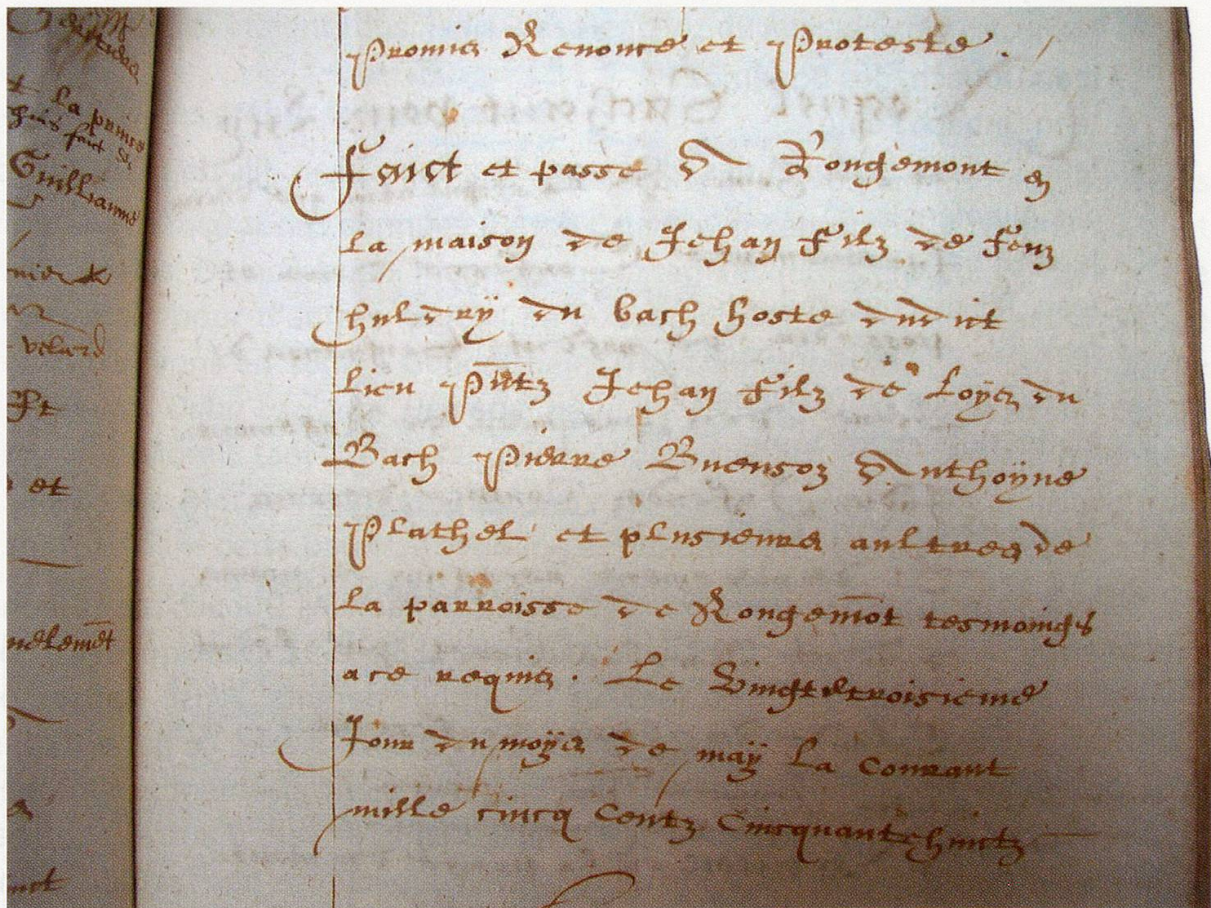 Promis Renonce et Proteste .
Faict et passe a Rougemont en
la maison de Jehan filz de feuz
huldry du bach hoste dudict
lieu Pñtz Jehan filz de Loys du
Bach Pierre Buenzoz Anthoyne
Plathel et plusieurs aultres de
la parroisse de Rougemõt tesmoings
a ce requis . Le Vingt et troisieme
Jour du moys de may La Courant
mille cincq Centz Cincquante huictz
la prins
Guilliaume
velard
et
nelemẽt